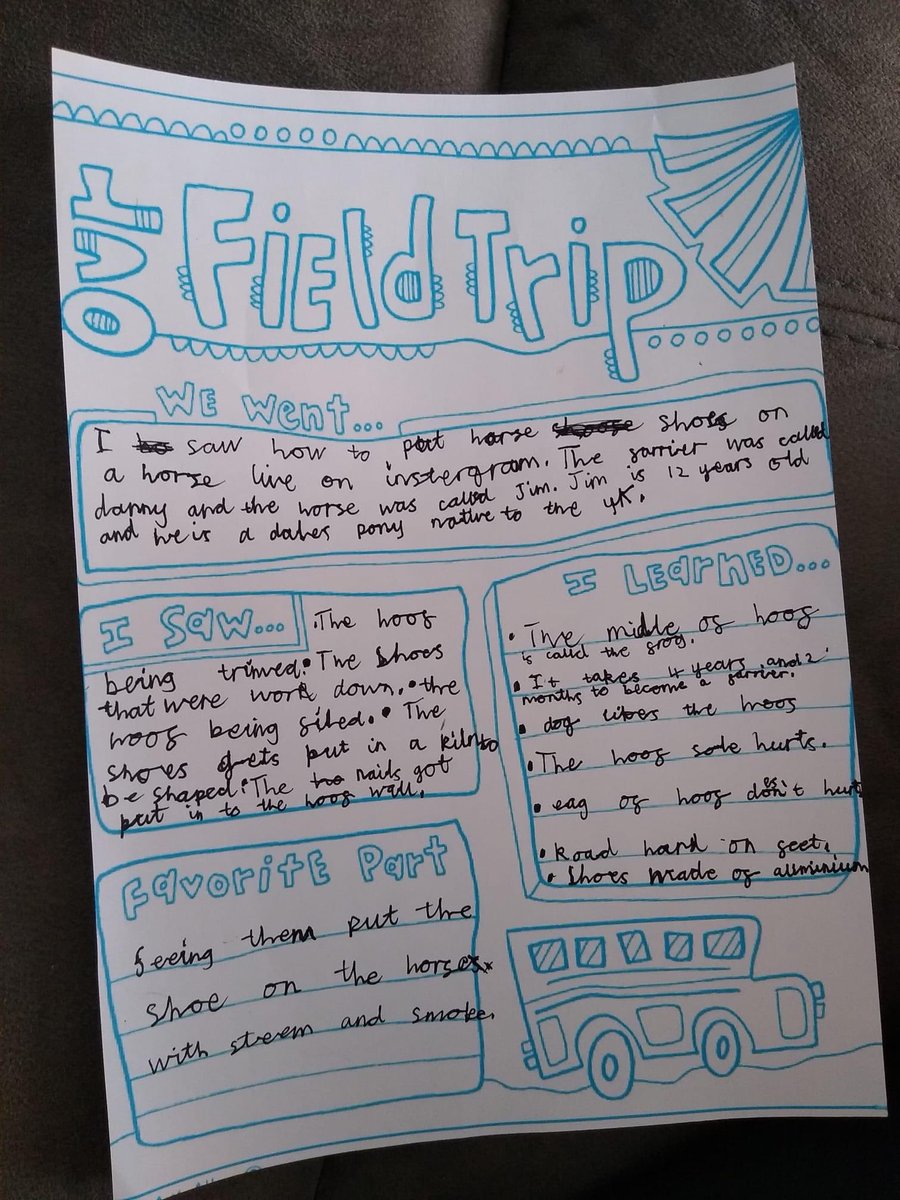 Our Field Trip
We Went...
I saw how to put horse shoes on
a horse live on instergram. The farrier was called
danny and the horse was called Jim. Jim is 12 years old
and he is a dales pony native to the UK.
I Saw...
• The hoof
being trimed. • The shoes
that were worn down. • the
hoof being filed. • The
shoes gets put in a kiln to
be shaped. • The nails got
put in to the hoof wall.
I Learned...
• The middle of hoof
is called the frog.
• It takes 4 years and 2
months to become a farrier.
• dog likes the hoof
• The hoof sole hurts.
• of hoof doesn't hurt
• Road hard on feet.
• Shoes made of aluminium
Favorite Part
Seeing them put the
shoe on the horses
with steem and smoke.